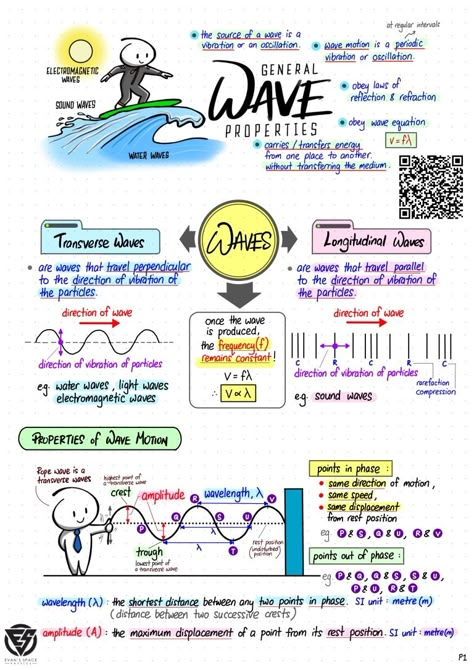 at regular intervals
• the source of a wave is a
vibration or an oscillation.
• wave motion is a periodic
vibration or oscillation.
ELECTROMAGNETIC
WAVES
SOUND WAVES
WATER WAVES
GENERAL
WAVE
PROPERTIES
• obey laws of
reflection & refraction
• obey wave equation
V = fλ
• carries / transfers energy
from one place to another.
without transferring the medium.
Transverse Waves
WAVES
Longitudinal Waves
• are waves that travel perpendicular
to the direction of vibration of
the particles.
direction of wave
direction of vibration of particles
eg. water waves, light waves
electromagnetic waves
once the wave
is produced,
the frequency(f)
remains constant!
V = fλ
∴ V ∝ λ
• are waves that travel parallel
to the direction of vibration of
the particles.
direction of wave
C R C R C
direction of vibration of particles
rarefaction
compression
eg. sound waves
PROPERTIES of WAVE MOTION
Rope wave is a
transverse waves
highest point of
a transverse wave
crest
amplitude
wavelength, λ
R V
Q S U
P T
λ
λ
trough
lowest point of
a transverse wave
rest position
(undisturbed
position)
points in phase :
• same direction of motion,
• same speed,
• same displacement
from rest position
eg. P & S, Q & U, R & V
points out of phase :
eg. P & Q, Q & S, S & U,
P & U, R & T
wavelength (λ) : the shortest distance between any two points in phase. SI unit : metre(m)
(distance between two successive crests)
amplitude (A) : the maximum displacement of a point from its rest position. SI unit : metre(m)
ES
EVAN'S SPACE
P1